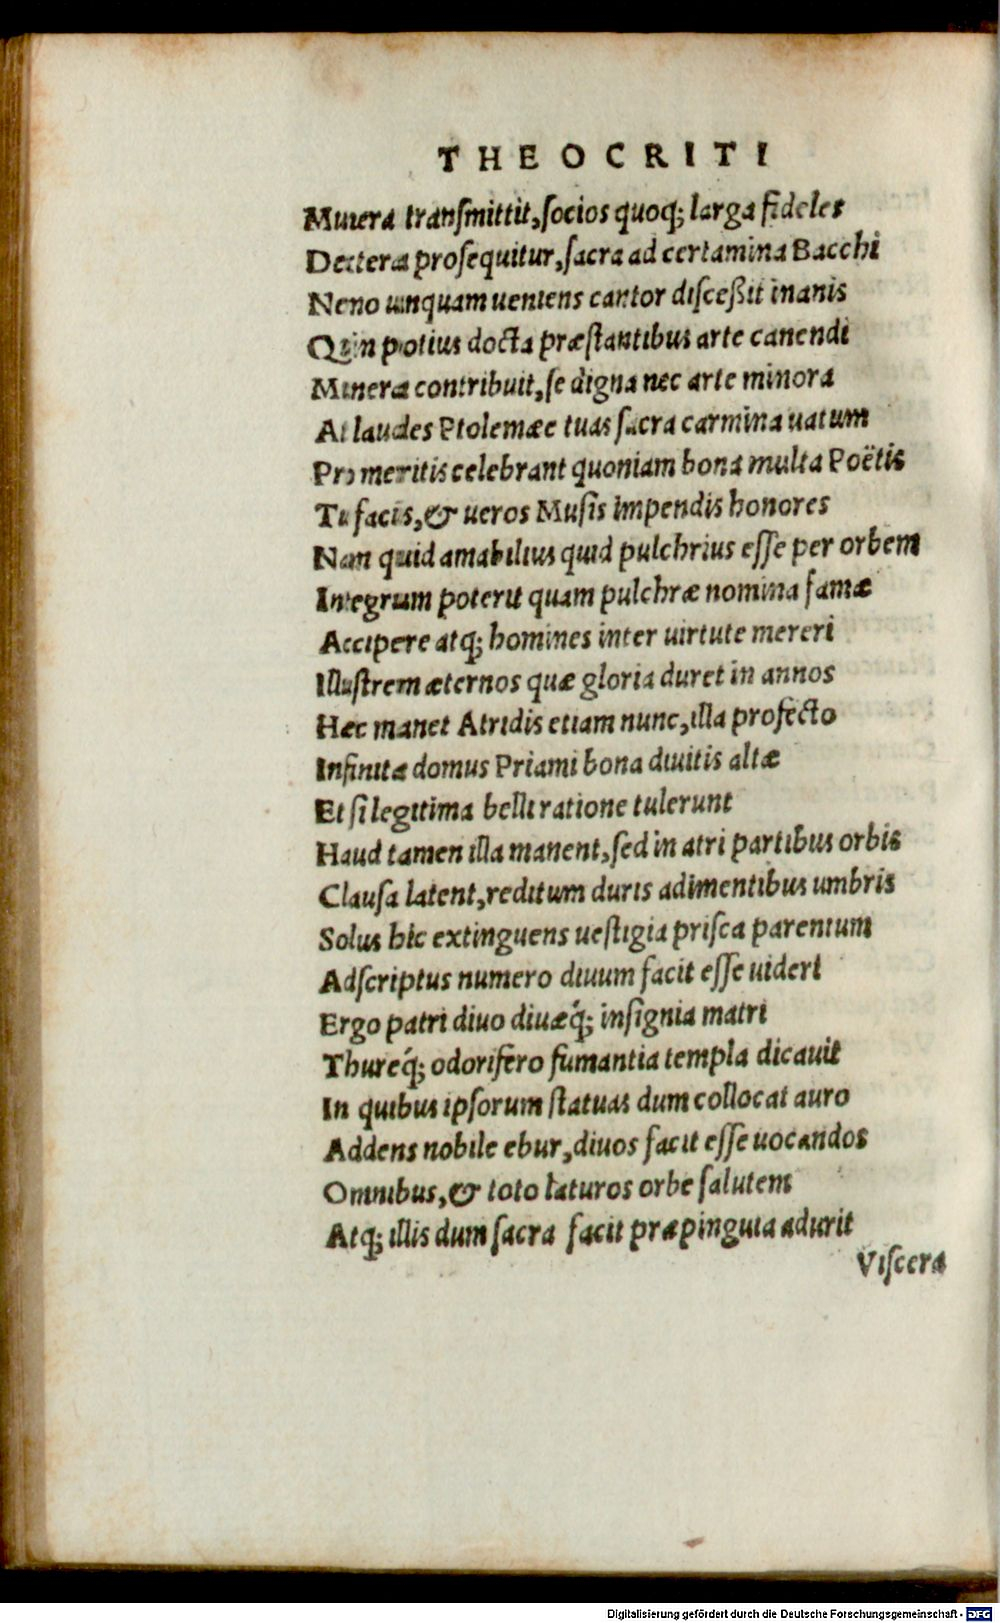 THEOCRITI
Munera transmittit, socios quoq; larga fideles
Dextera prosequitur, sacra ad certamina Bacchi
Nemo unquam ueniens cantor disceßit inanis
Quin potius docta præstantibus arte canendi
Munera contribuit, se digna nec arte minora
At laudes Ptolemæe tuas sacra carmina uatum
Pro meritis celebrant quoniam bona multa Poëtis
Tu facis, & ueros Musis impendis honores
Nan quid amabilius quid pulchrius esse per orbem
Integrum poterit quam pulchræ nomina famæ
Accipere atq; homines inter uirtute mereri
Illustrem æternos quæ gloria duret in annos
Hæc manet Atridis etiam nunc, illa profecto
Infinita domus Priami bona diuitis altæ
Et si legitima belli ratione tulerunt
Haud tamen illa manent, sed in atri partibus orbis
Clausa latent, reditum duris adimentibus umbris
Solus hic extinguens uestigia prisca parentum
Adscriptus numero diuum facit esse uideri
Ergo patri diuo diuæq́; insignia matri
Thureq́; odorifero fumantia templa dicauit
In quibus ipsorum statuas dum collocat auro
Addens nobile ebur, diuos facit esse uocandos
Omnibus, & toto laturos orbe salutem
Atq; illis dum sacra facit præpinguia adurit
Viscera
Digitalisierung gefördert durch die Deutsche Forschungsgemeinschaft - DFG